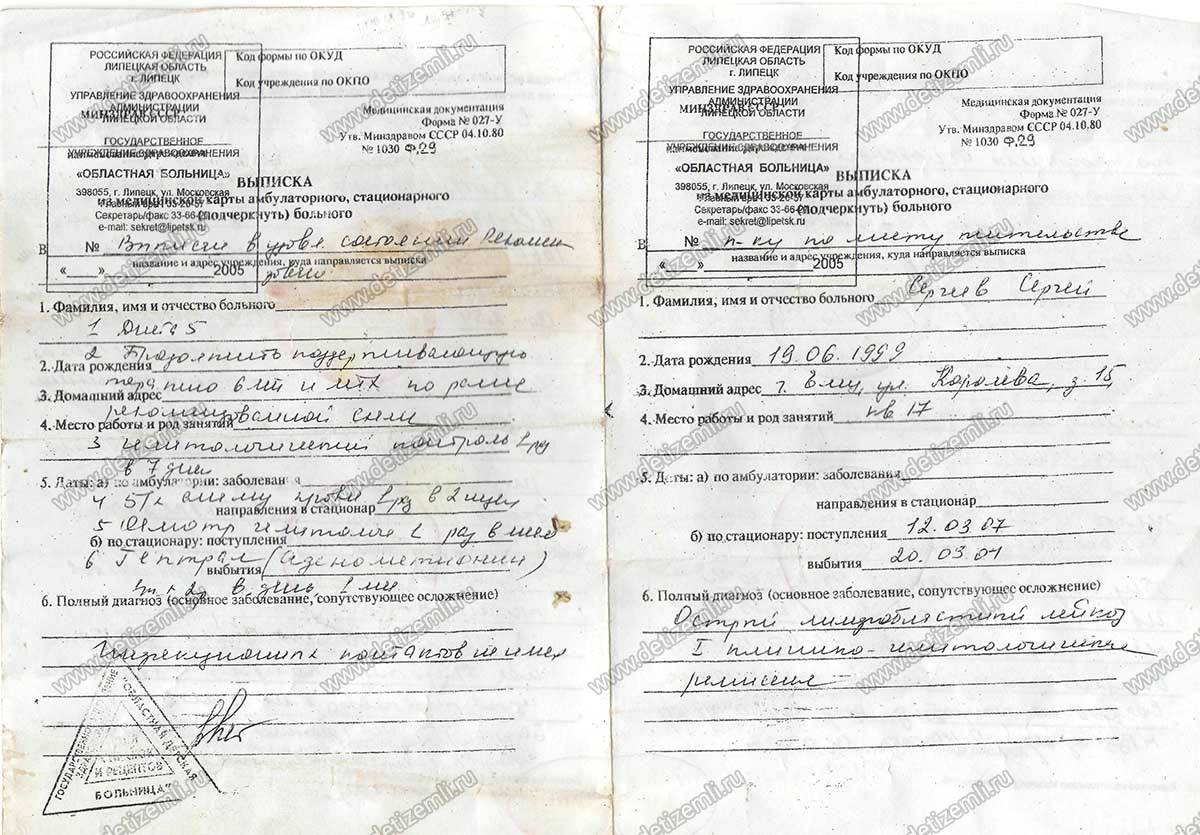 РОССИЙСКАЯ ФЕДЕРАЦИЯ
ЛИПЕЦКАЯ ОБЛАСТЬ
г. ЛИПЕЦК
УПРАВЛЕНИЕ ЗДРАВООХРАНЕНИЯ
АДМИНИСТРАЦИИ
МИНЗДРАВ СССР
ЛИПЕЦКОЙ ОБЛАСТИ
ГОСУДАРСТВЕННОЕ
УЧРЕЖДЕНИЕ ЗДРАВООХРАНЕНИЯ
«ОБЛАСТНАЯ БОЛЬНИЦА»
398055, г. Липецк, ул. Московская
Секретарь/факс 33-66
e-mail: sekret@lipetsk.ru
Код формы по ОКУД
Код учреждения по ОКПО
Медицинская документация
Форма № 027-У
Утв. Минздравом СССР 04.10.80
№ 1030 Ф.29
ВЫПИСКА
из медицинской карты амбулаторного, стационарного
(подчеркнуть) больного
В № Выписан в удовл. состоянии
название и адрес учреждения, куда направляется выписка
«___» 2005
1. Фамилия, имя и отчество больного
1 Диета 5
2 Продолжить поддерживающую
2. Дата рождения
терапию 6МП и МТХ по ранее
3. Домашний адрес
4. Место работы и род занятий
3 гематологический контроль 1 раз
в 7 дней
5. Даты: а) по амбулатории: заболевания
4 Б/х крови 1 раз в 2
направления в стационар
5 Осмотр гематолога 1 раз в мес
б) по стационару: поступления
6 Гептрал (адеметионин)
выбытия
в день 1 мес
6. Полный диагноз (основное заболевание, сопутствующее осложнение)
Инфекционных контактов не имел
ГОСУДАРСТВЕННОЕ
ОБЛАСТНАЯ ДЕТСКАЯ
И РЕЦЕПТОВ
БОЛЬНИЦА"
РОССИЙСКАЯ ФЕДЕРАЦИЯ
ЛИПЕЦКАЯ ОБЛАСТЬ
г. ЛИПЕЦК
УПРАВЛЕНИЕ ЗДРАВООХРАНЕНИЯ
АДМИНИСТРАЦИИ
МИНЗДРАВ СССР
ЛИПЕЦКОЙ ОБЛАСТИ
ГОСУДАРСТВЕННОЕ
УЧРЕЖДЕНИЕ ЗДРАВООХРАНЕНИЯ
«ОБЛАСТНАЯ БОЛЬНИЦА»
398055, г. Липецк, ул. Московская
Секретарь/факс 33-66
e-mail: sekret@lipetsk.ru
Код формы по ОКУД
Код учреждения по ОКПО
Медицинская документация
Форма № 027-У
Утв. Минздравом СССР 04.10.80
№ 1030 Ф.29
ВЫПИСКА
из медицинской карты амбулаторного, стационарного
(подчеркнуть) больного
В № п-ку по месту жительства
название и адрес учреждения, куда направляется выписка
«___» 2005
1. Фамилия, имя и отчество больного Сергеев Сергей
2. Дата рождения 19.06.1999
3. Домашний адрес г. Елец, ул. Королева, д. 15,
4. Место работы и род занятий кв 17
5. Даты: а) по амбулатории: заболевания
направления в стационар
б) по стационару: поступления 12.03.07
выбытия 20.03.07
6. Полный диагноз (основное заболевание, сопутствующее осложнение)
Острый лимфобластный лейкоз
I клинико-гематологическая
ремиссия
www.detizemli.ru